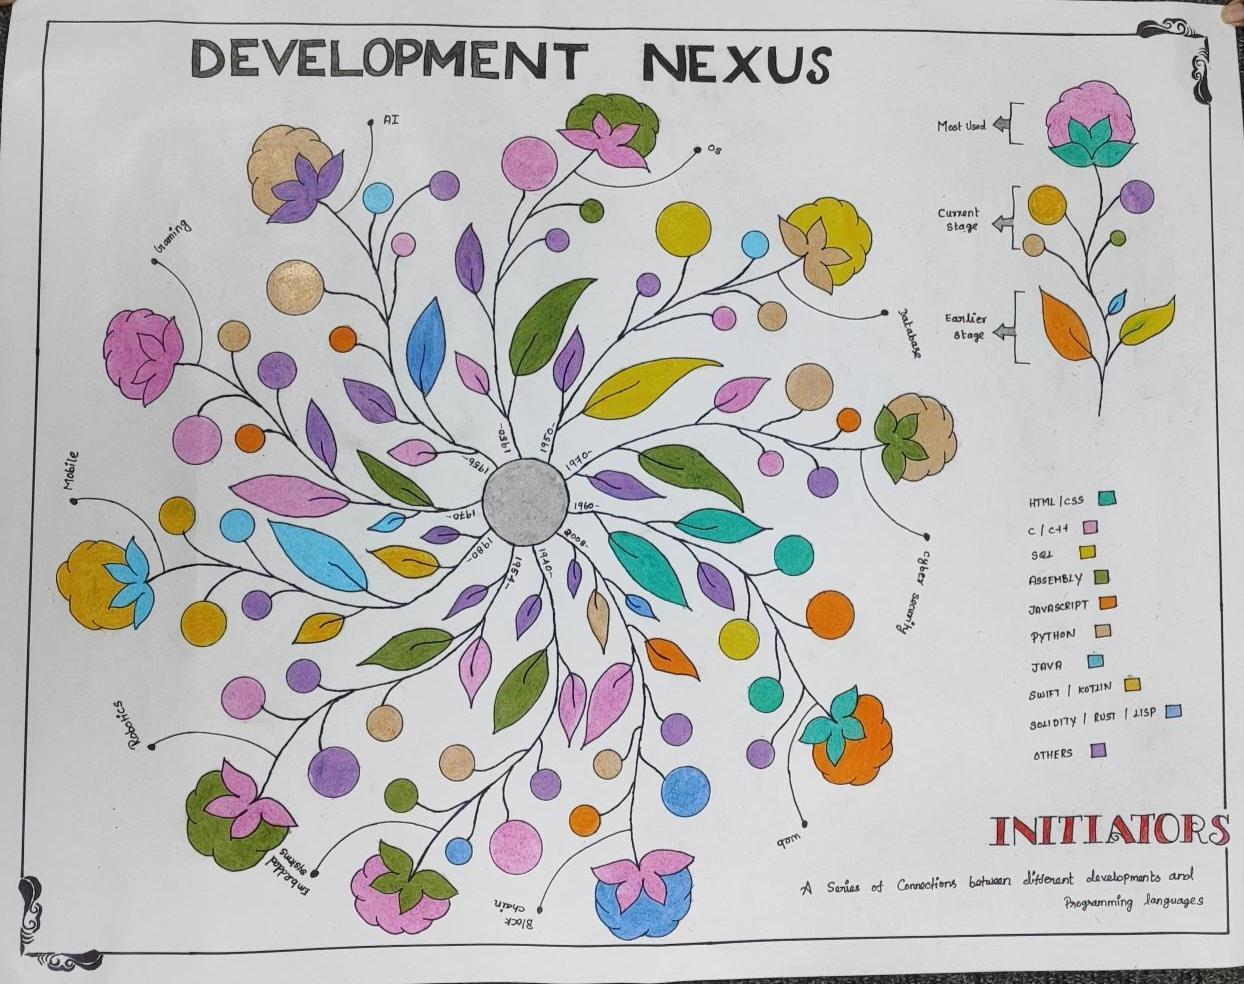 DEVELOPMENT NEXUS
AI
OS
Gaming
Database
Mobile
Cyber security
Robotics
Embedded
systems
Block
chain
Web
1950-
1950-
1970-
1960-
2008-
1940-
1954-
1980-
1970-
1956-
Most Used
Current
Stage
Earlier
Stage
HTML/CSS
C/C++
SQL
ASSEMBLY
JAVASCRIPT
PYTHON
JAVA
SWIFT / KOTLIN
SOLIDITY / RUST / LISP
OTHERS
INITIATORS
A Series of Connections between different developments and
Programming languages